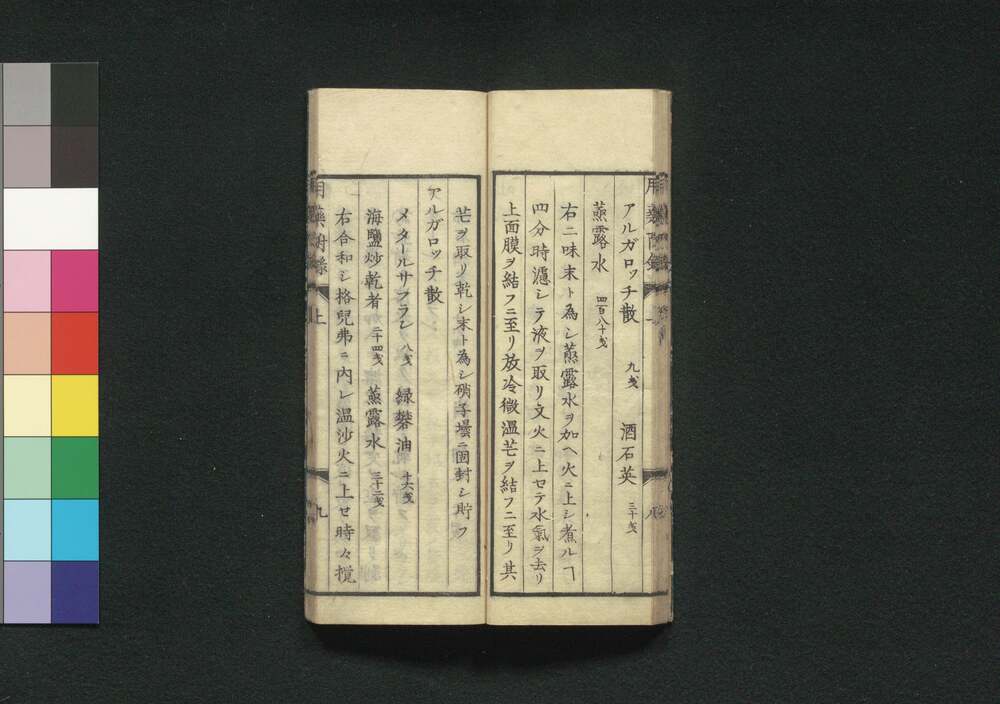 アルガロッチ散 九戔 酒石英 三十戔
蒸露水 四百八十戔
右二味末ト為シ蒸露水ヲ加ヘ火ニ上シ煮ルヿ
四分時濾シテ液ヲ取リ文火ニ上セテ水氣ヲ去リ
上面膜ヲ結フニ至リ放冷微溫芒ヲ結フニ至リ其
八
芒ヲ取リ乾シ末ト為シ硝子壜ニ固封シ貯フ
アルガロッチ散
メタールサフラン 八戔 緑礬油 十六戔
海鹽炒乾者 二十四戔 蒸露水 三十二戔
右合和シ格兒弗ニ內レ温沙火ニ上セ時々攪
用藥附録 上 九